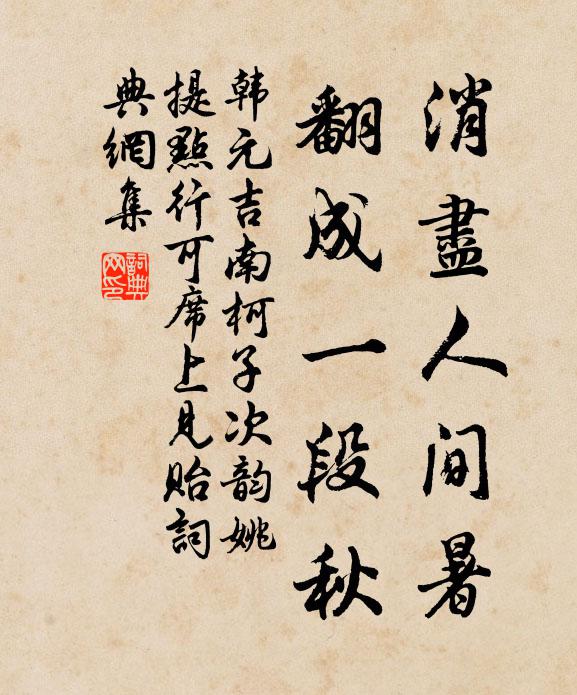 消盡人間暑
翻成一段秋
韩元吉南柯子次韵姚
提點行可席上見貽詞
典網集
詞典網印